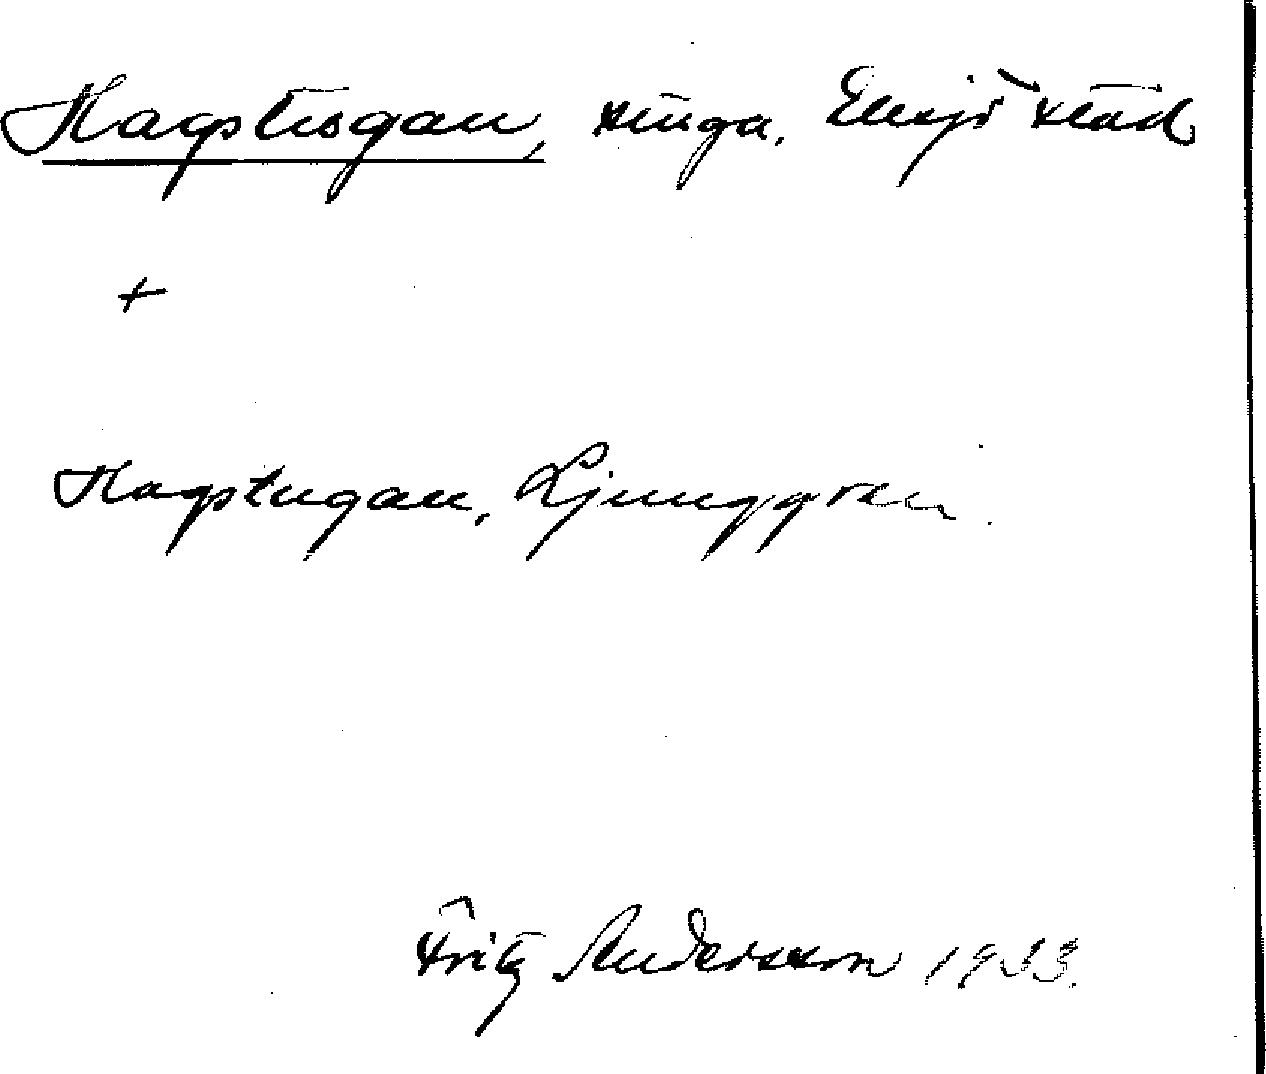 Hagstugan, stuga, Eksjö stad
+
Hagstugan, Ljunggren.
Fritz Andersson 1933.